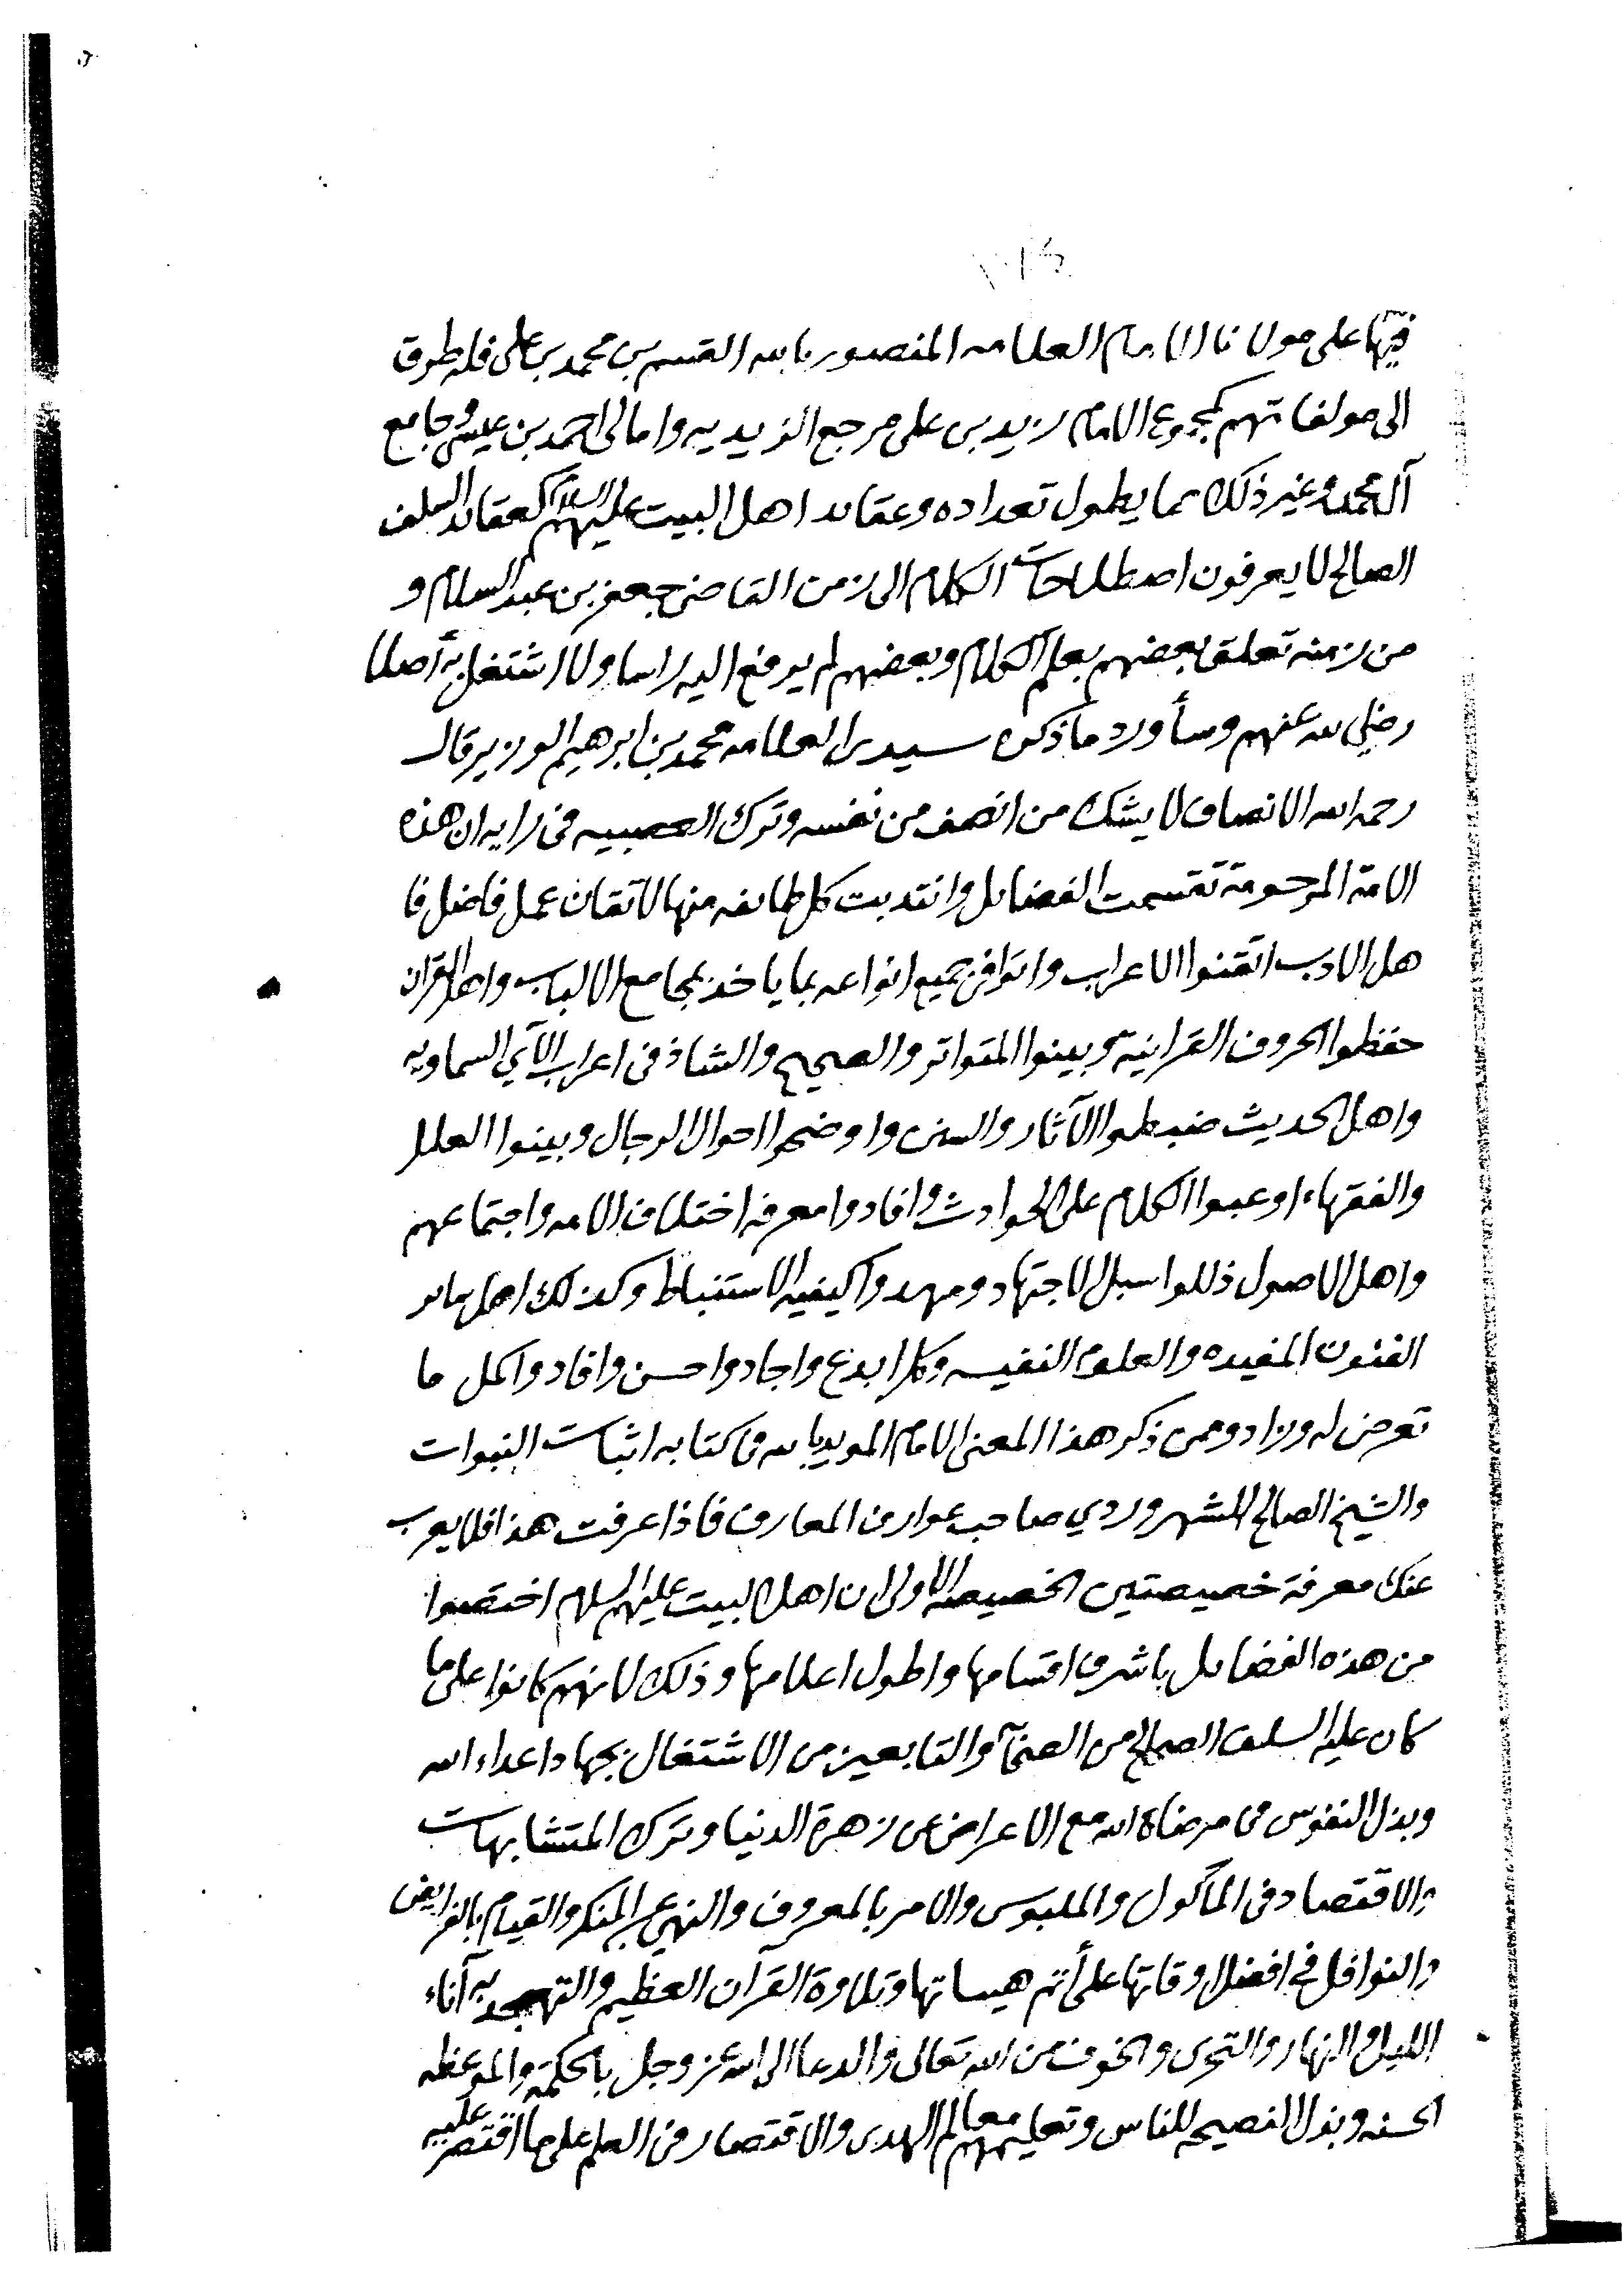 فيها على مولانا الامام العلامه المنصور بالله القسم بن محمد بن على فله طرق
الى مولفاتهم كمجموع الامام زيد بن على مرجع الزيديه وامالى احمد بن عيسى وجامع
آل محمد وغير ذلك مما يطول تعداده وعقائد اهل البيت عليهم السلام كعقائد السلف
الصالح لا يعرفون اصطلاحات الكلام الى زمن القاضى جعفر بن عبد السلام و
من زمنه تعلق بعضهم بعلم الكلام وبعضهم لم يرفع اليه راسا ولا اشتغل به أصلا
رضي الله عنهم وسأورد ما ذكره سيدى العلامه محمد بن ابرهيم الوزير قال
رحمه الله الانصاف لا يشك من انصف من نفسه وترك العصبيه فى رايه ان هذه
الامة المرحومة تقسمت الفضايل وانتدبت كل طائفه منها لاتقان عمل فاضل فا
هل الادب اتقنوا الاعراب واتوا فى جميع انواعه بما ياخذ بمجامع الالباب واهل القران
حفظوا الحروف القرانية وبينوا المتواتر والصحيح والشاذ فى اعراب الآي السماويه
واهل الحديث ضبطوا الآثار والسنن واوضحوا احوال الرجال وبينوا العلل
والفقهاء اوعبوا الكلام على الحوادث وافادوا معرفه اختلاف الامه واجتماعهم
واهل الاصول ذللوا سبل الاجتهاد ومهدوا كيفيه الاستنباط وكذلك اهل سائر
الفنون المفيده والعلوم النفيسه وكل ابدع واجاد واحسن وافاد واكمل ما
تعرض له وزاد وممن ذكر هذا المعنى الامام المويد بالله فى كتابه اثبات النبوات
والشيخ الصالح السهروردي صاحب عوارف المعارف فاذا عرفت هذا فلا يعزب
عنك معرفة خصيصتين الخصيصه الاولى ان اهل البيت عليهم السلام اختصوا
من هذه الفضايل باشرف اقسامها واطول اعلامها وذلك لانهم كانوا على ما
كان عليه السلف الصالح من الصحابة والتابعين من الاشتغال بجهاد اعداء الله
وبذل النفوس فى مرضاة الله مع الاعراض عن زهرة الدنيا وترك المتشابهات
والاقتصاد فى المأكول والملبوس والامر بالمعروف والنهي عن المنكر والقيام بالفرايض
والنوافل في افضل اوقاتها على أتم هيئاتها وتلاوة القرآن العظيم والتهجد به آناء
الليل والنهار والتحرى والخوف من الله تعالى والدعا الى الله عز وجل بالحكمة والموعظه
الحسنه وبذل النصيحه للناس وتعليمهم معالم الهدى والاقتصار فى العلم على ما اقتصر عليه